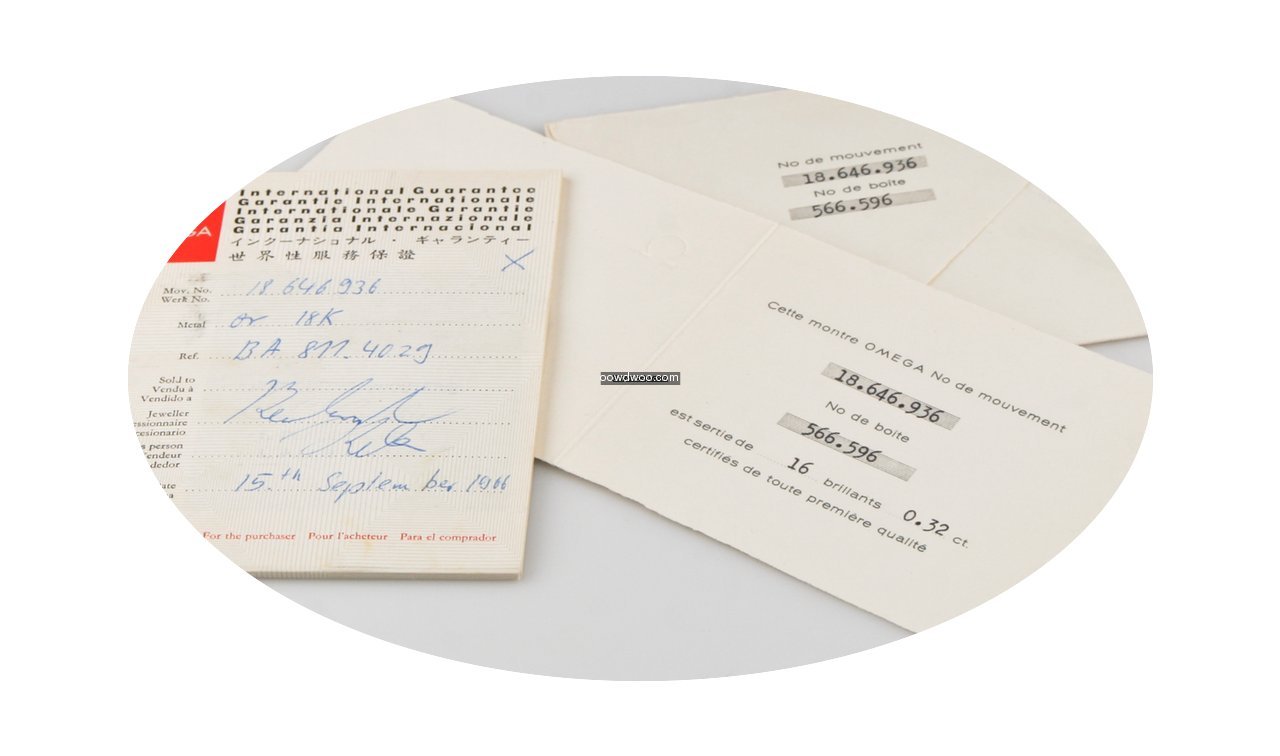 International Guarantee
Garantie Internationale
Internationale Garantie
Garanzia Internazionale
Garantía Internacional
インターナショナル・ギャランティー
世界性服務保證
GA
X
Mov. No. 18 646 936
Werk No.
Metal or 18K
Ref. BA 811.4029
Sold to
Vendu à
Vendido a
Jeweller
person
15.th September 1966
For the purchaser Pour l'acheteur Para el comprador
No de mouvement
18.646.936
No de boîte
566.596
Cette montre OMEGA No de mouvement
18.646.936
No de boîte
566.596
est sertie de 16 brillants 0.32 ct.
certifiés de toute première qualité
bowdwoo.com